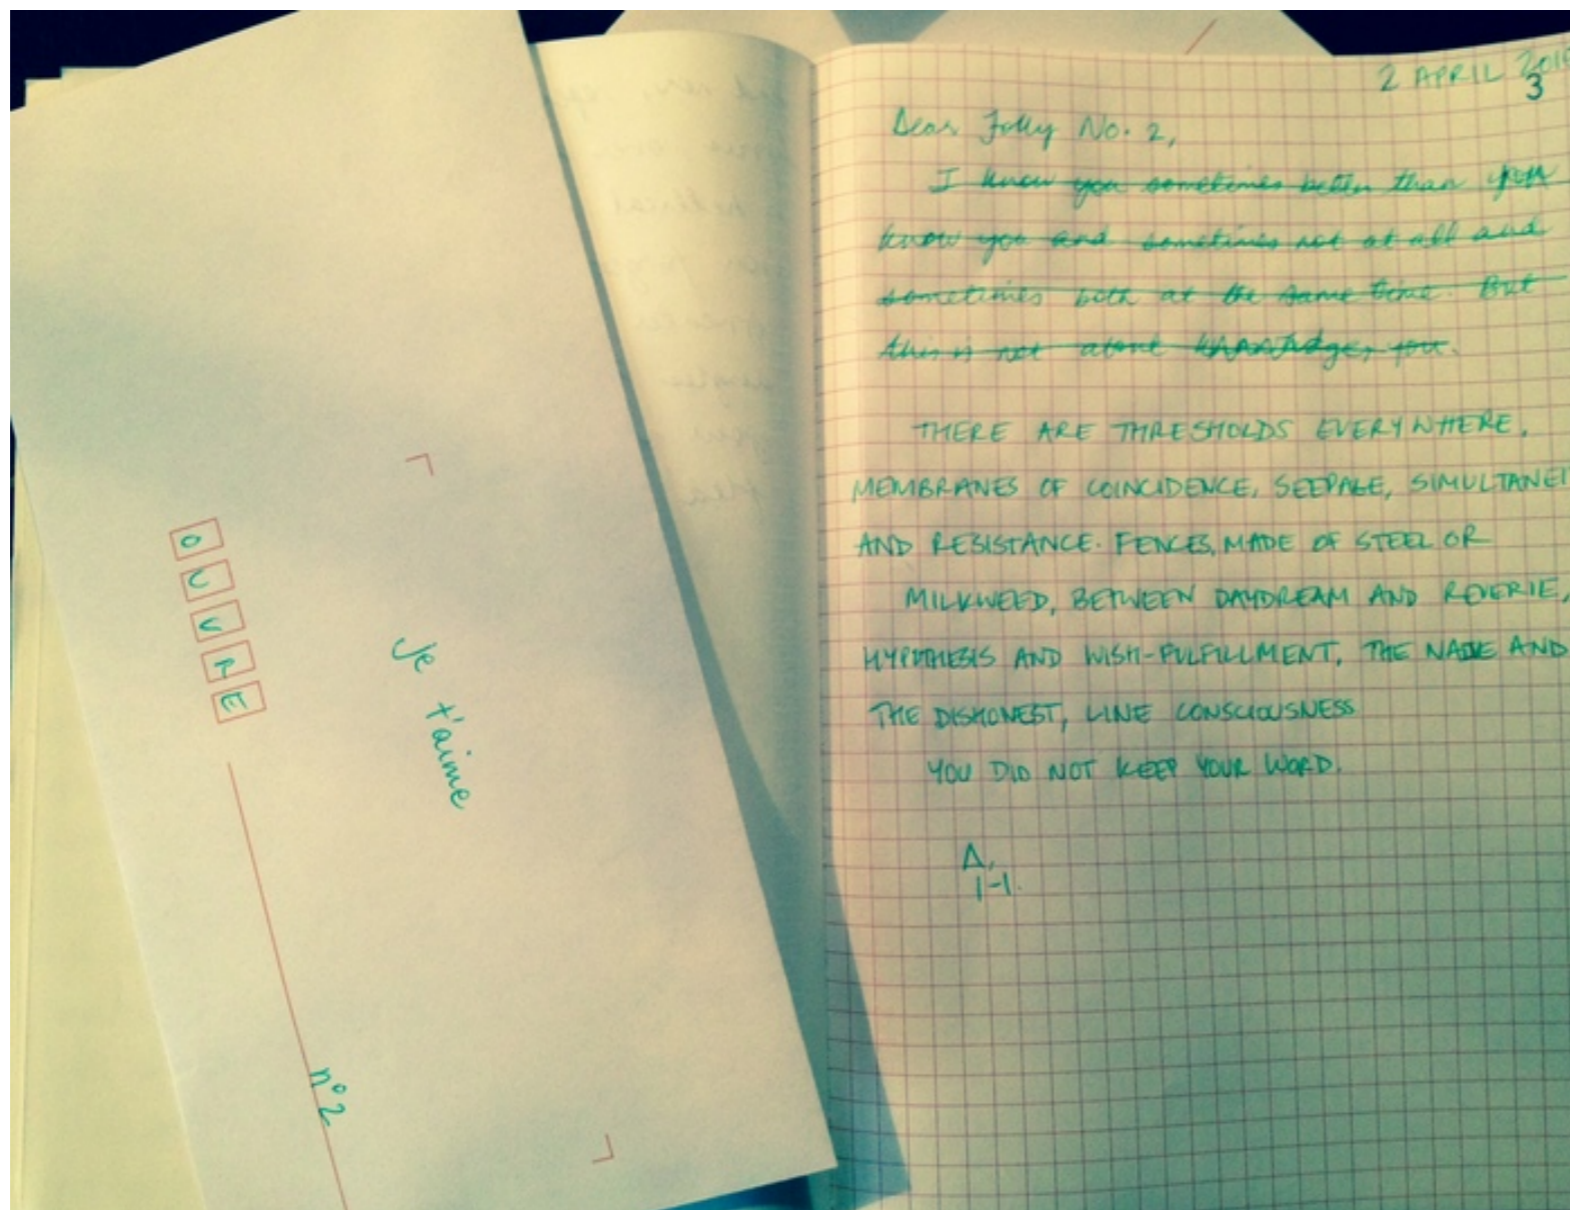 OUVRE
Je t'aime
n°2
2 APRIL 201
3
Dear Folly No. 2,
I know you sometimes better than you
know you and sometimes not at all and
sometimes both at the same time. But
this is not about knowledge, you.
THERE ARE THRESHOLDS EVERYWHERE,
MEMBRANES OF COINCIDENCE, SEEPAGE, SIMULTANEI
AND RESISTANCE. FENCES, MADE OF STEEL OR
MILKWEED, BETWEEN DAYDREAM AND REVERIE,
HYPOTHESIS AND WISH-FULFILLMENT, THE NAIVE AND
THE DISHONEST, LINE CONSCIOUSNESS
YOU DID NOT KEEP YOUR WORD.
A,
H.